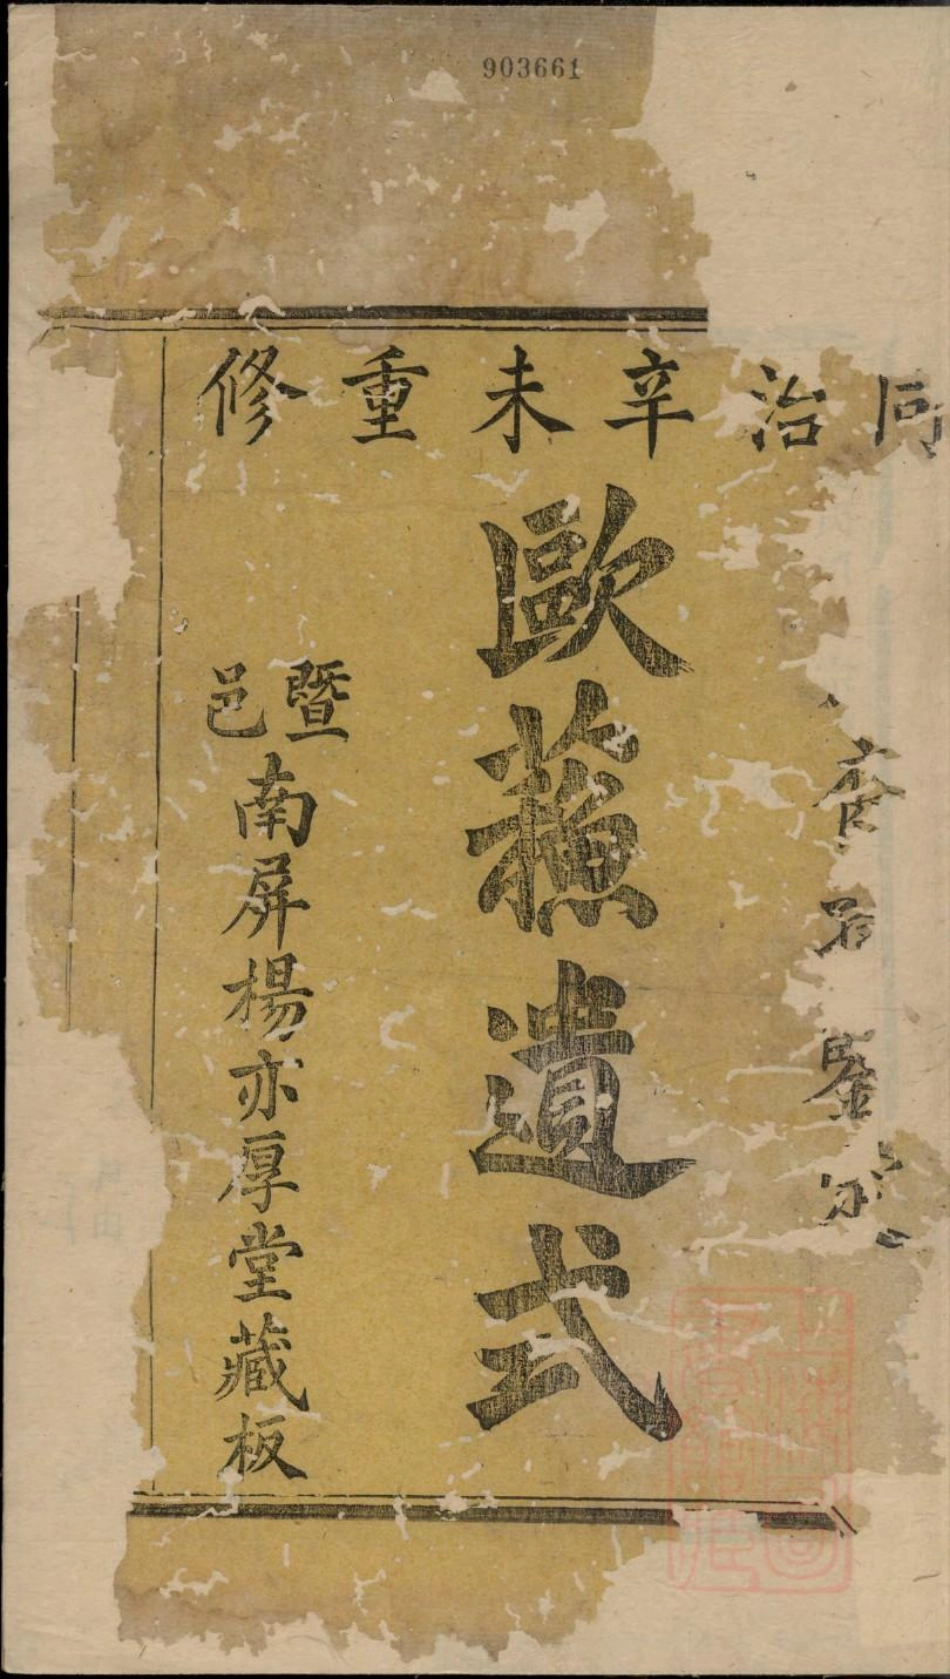 903661
同治辛未重修
鑒
歐蘓遺式
暨邑南屏楊亦厚堂藏板